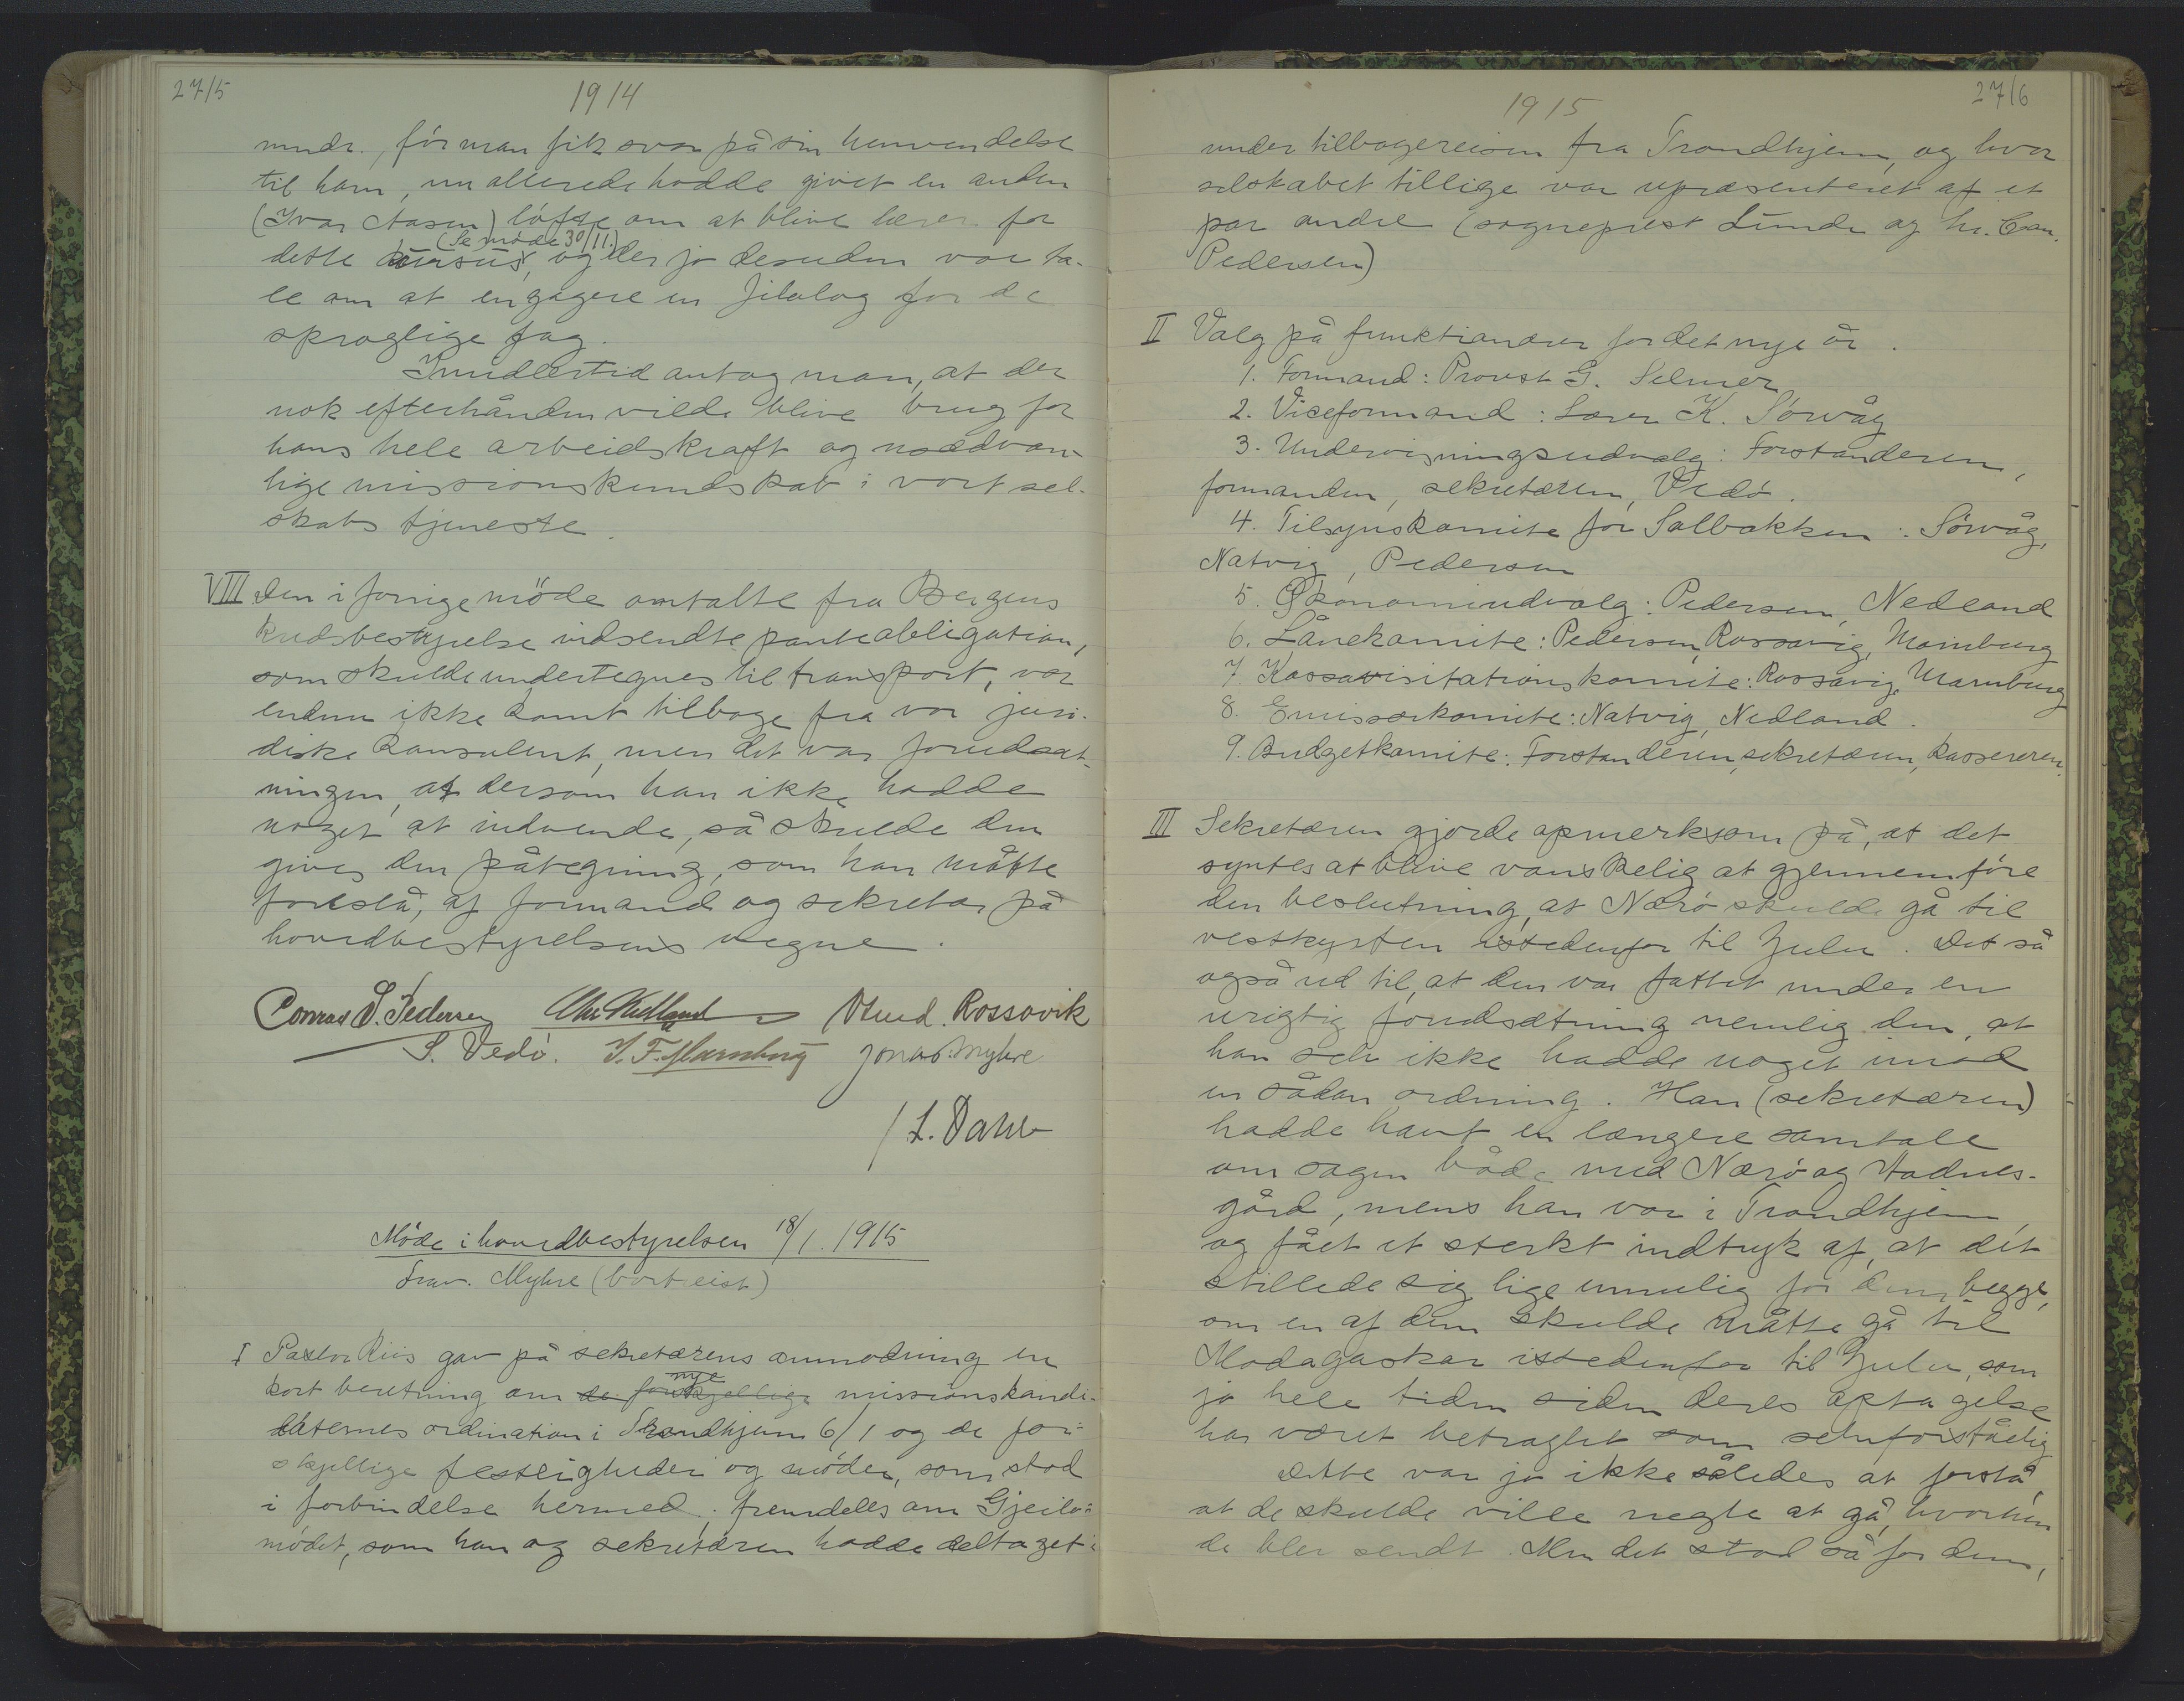 2715
1914
mndr., før man fik svar på sin henvendelse
til ham, nu allerede hadde givet en anden
(Ivar Aasen) løfte om at blive lærer for
(Se møde 30/11.)
dette kursus, og der jo desuden var ta-
le om at engagere en filolog for de
sproglige fag.
Imidlertid antog man, at der
nok efterhånden vilde blive brug for
hans hele arbeidskraft og usædvan-
lige missionskundskab i vort sel-
skabs tjeneste.
VIII Den i forrige møde omtalte fra Bergens
kredsbestyrelse indsendte panteobligation,
som skulde undertegnes til transport, var
endnu ikke komt tilbage fra vor juri-
diske konsulent, men det var forudsæt-
ningen, at dersom han ikke hadde
noget at indvende, så skulde den
gives den påtegning, som han måtte
foreslå, af formand og sekretær på
hovedbestyrelsens vegne.
Conrad S. Pedersen Chr Nedland Amd. Rossavik
S. Vedø. J. F. Marnburg Jonas Myhre
/ L. Dahle
Møde i hovedbestyrelsen 18/1. 1915
Frav. Myhre (bortreist)
I Pastor Riis gav på sekretærens anmodning en
nye
kort beretning om de forskjellige missionskandi-
daternes ordination i Trondhjem 6/1 og de for-
skjellige festligheder og møder, som stod
i forbindelse hermed; fremdeles om Gjeilo-
mødet, som han og sekretæren hadde deltaget i
2716
1915
under tilbagereisen fra Trondhjem, og hvor
selskabet tillige var repræsenteret af et
par andre (sogneprest Lunde og hr. Con.
Pedersen)
II Valg på funktionærer for det nye år.
1. Formand: Provst G. Selmer
2. Viceformand: Lærer K. Sørvåg
3. Undervisningsudvalg: Forstanderen,
formanden, sekretæren, Vedø.
4. Tilsynskomite for Solbakken: Sørvåg,
Natvig, Pedersen
5. Økonomiudvalg: Pedersen, Nedland
6. Lånekomite: Pedersen, Rossavig, Marnburg
7. Kassavisitationskomite: Rossavig, Marnburg
8. Emissærkomite: Natvig, Nedland.
9. Budgetkomite: Forstanderen, sekretæren, kassereren.
III Sekretæren gjorde opmerksom på, at det
syntes at blive vanskelig at gjennemføre
den beslutning, at Nærø skulde gå til
vestkysten istedenfor til Zulu. Det så
også ud til, at den var fattet under en
urigtig forudsætning nemlig den, at
han selv ikke hadde noget imod
en sådan ordning. Han (sekretæren)
hadde havt en længere samtale
om sagen både med Nærø og Hodnes-
gård, mens han var i Trondhjem,
og fået et sterkt indtryk af, at det
stillede sig lige umulig for dem begge,
om en af dem skulde måtte gå til
Madagaskar istedenfor til Zulu, som
jo hele tiden siden deres optagelse
har været betragtet som selvforståelig
Dette var jo ikke således at forstå,
at de skulde ville negte at gå, hvorhen
de blev sendt. Men det stod så for dem,